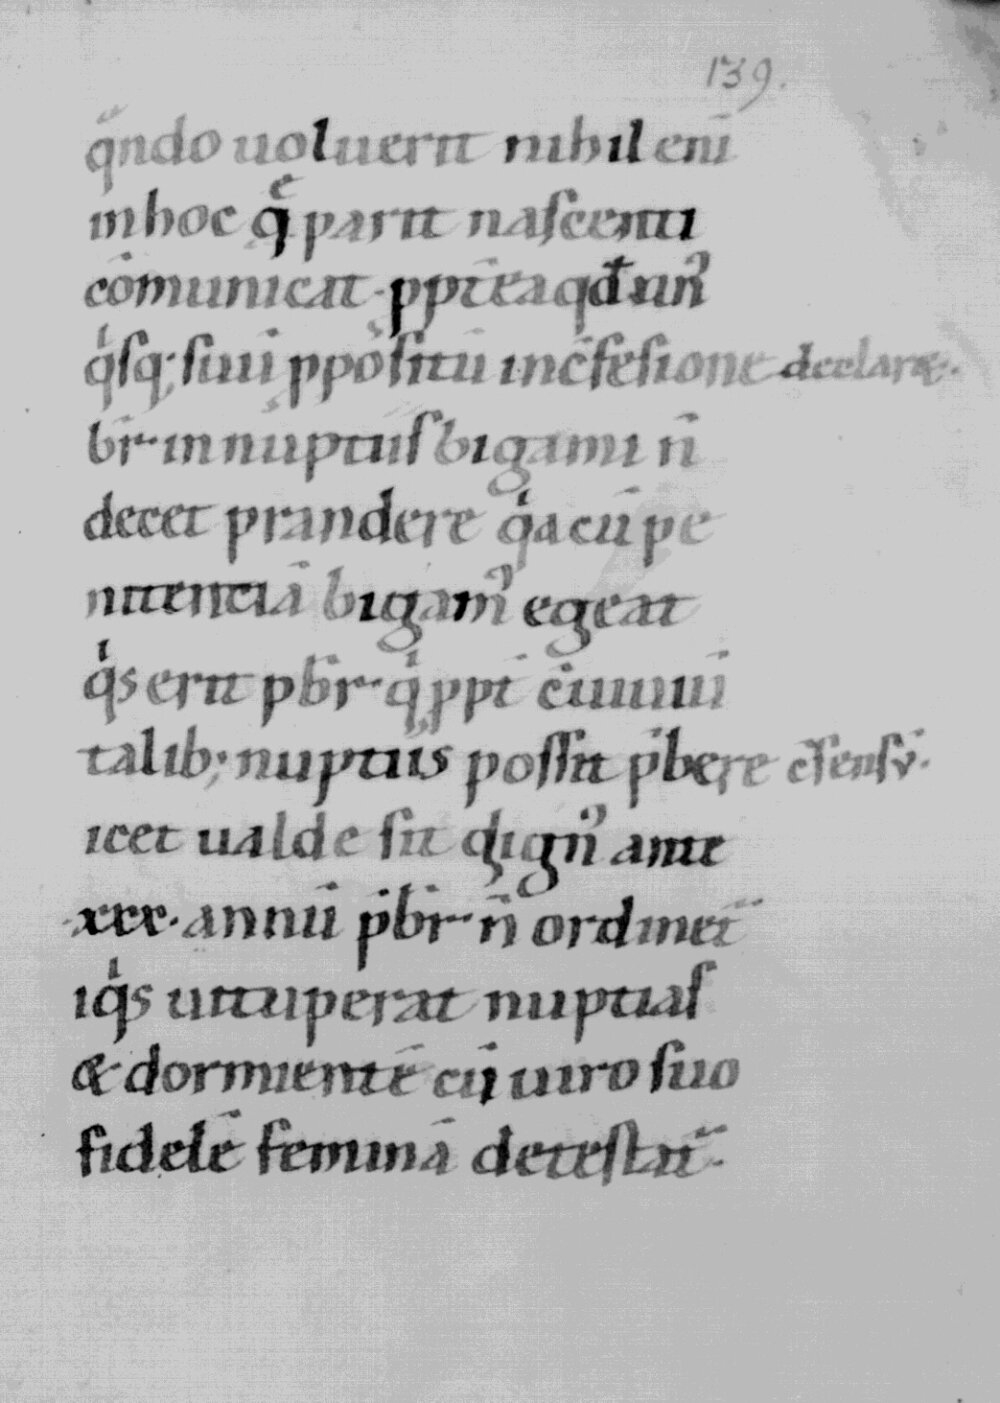 139.
q̄ndo uoluerit nihil eni̅
in hoc q̄ͤ parit nascenti
co̅municat. ppt̅ea qd̅ un᾽
qⁱsq; suu̅ ppositu̅ in c̅fessione declaræ.
br̅. in nuptiis bigami n̅
decet prandere qⁱa cu̅ pe
nitencia̅ bigam᾽ egeat
qⁱs erit pbr̅. qⁱ ppt̅ c̅uiuii
talib; nuptiis possit p̅bere c̅sensu̅.
icet ualde sit dign᾽ ante
.xxx. annu̅ pbr̅. n̅ ordinet᷑
iqⁱs uituperat nuptias
& dormiente̅ cu̅ uiro suo
fidele̅ femina̅ detestat᷑.